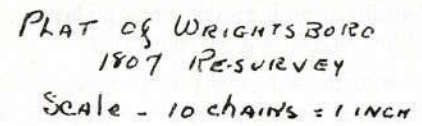 PLAT OF WRIGHTSBORO
1807 RE-SURVEY
SCALE - 10 CHAINS = 1 INCH